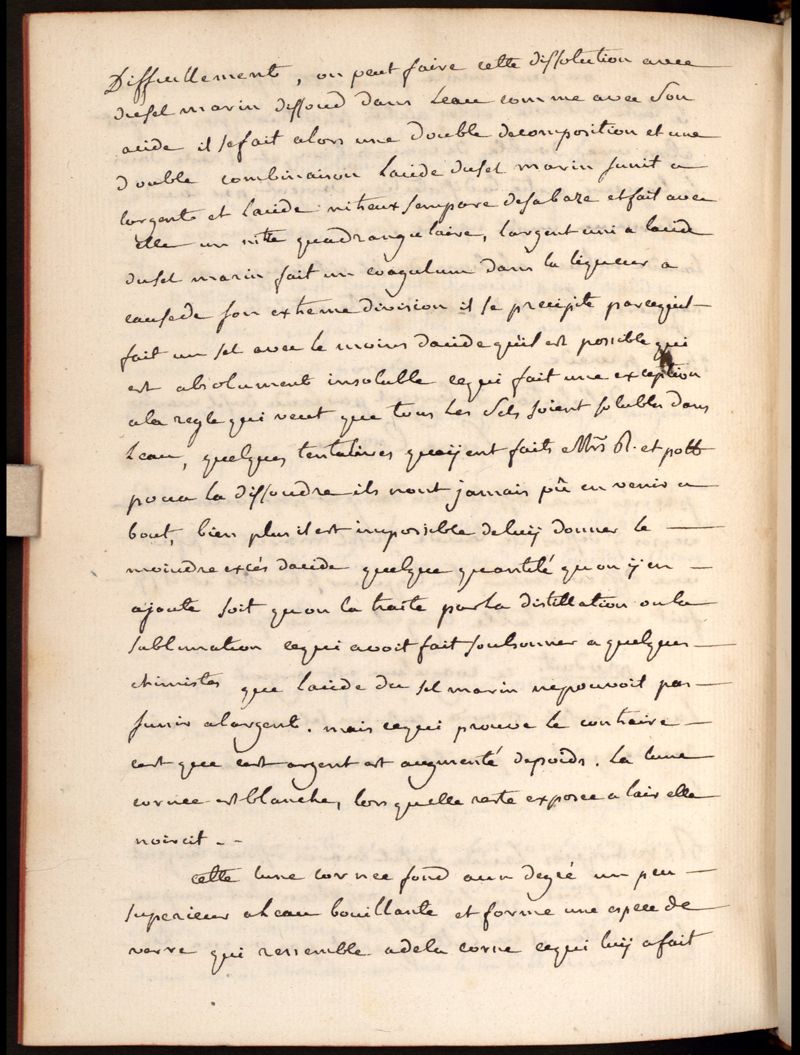 Difficillement, on peut faire cette dissolution avec
du sel marin dissoud dans Leau comme avec Son
acide il se fait alors une double decomposition et une
double combinaison Lacide du sel marin sunit a
largent et Lacide nitreux sempare de sa baze et fait avec
elle un nitre quadrangulaire, Largent uni a lacide
du sel marin fait un coagulum dans la liqueur a
cause de son extreme division il se precipite parcequil
fait un sel avec le moins dacide quil est possible qui
est absolument insoluble cequi fait une exception
ala regle qui veut que tous Les Sels soient solubles dans
Leau, quelques tentatives quayent faits Mrs R. et pott
pour la dissoudre ils nont jamais pû en venir a
bout, bien plus il est impossible de luÿ donner le
moindre excés dacide quelque quantité quon ÿ en
ajoute soit quon la traite par La distillation ou la
sublimation cequi avoit fait soubsonner a quelques
chimistes que Lacide du sel marin ne pouvoit pas
sunir alargent. mais cequi prouve le contraire
cest que cest argent est augmenté de poids. La lune
cornée est blanche, lors quelle reste exposée a lair elle
noircit - -
cette lune cornee fond a un degré un peu
superieur a Leau bouillante et forme une espece de
verre qui ressemble a de la corne cequi luÿ a fait